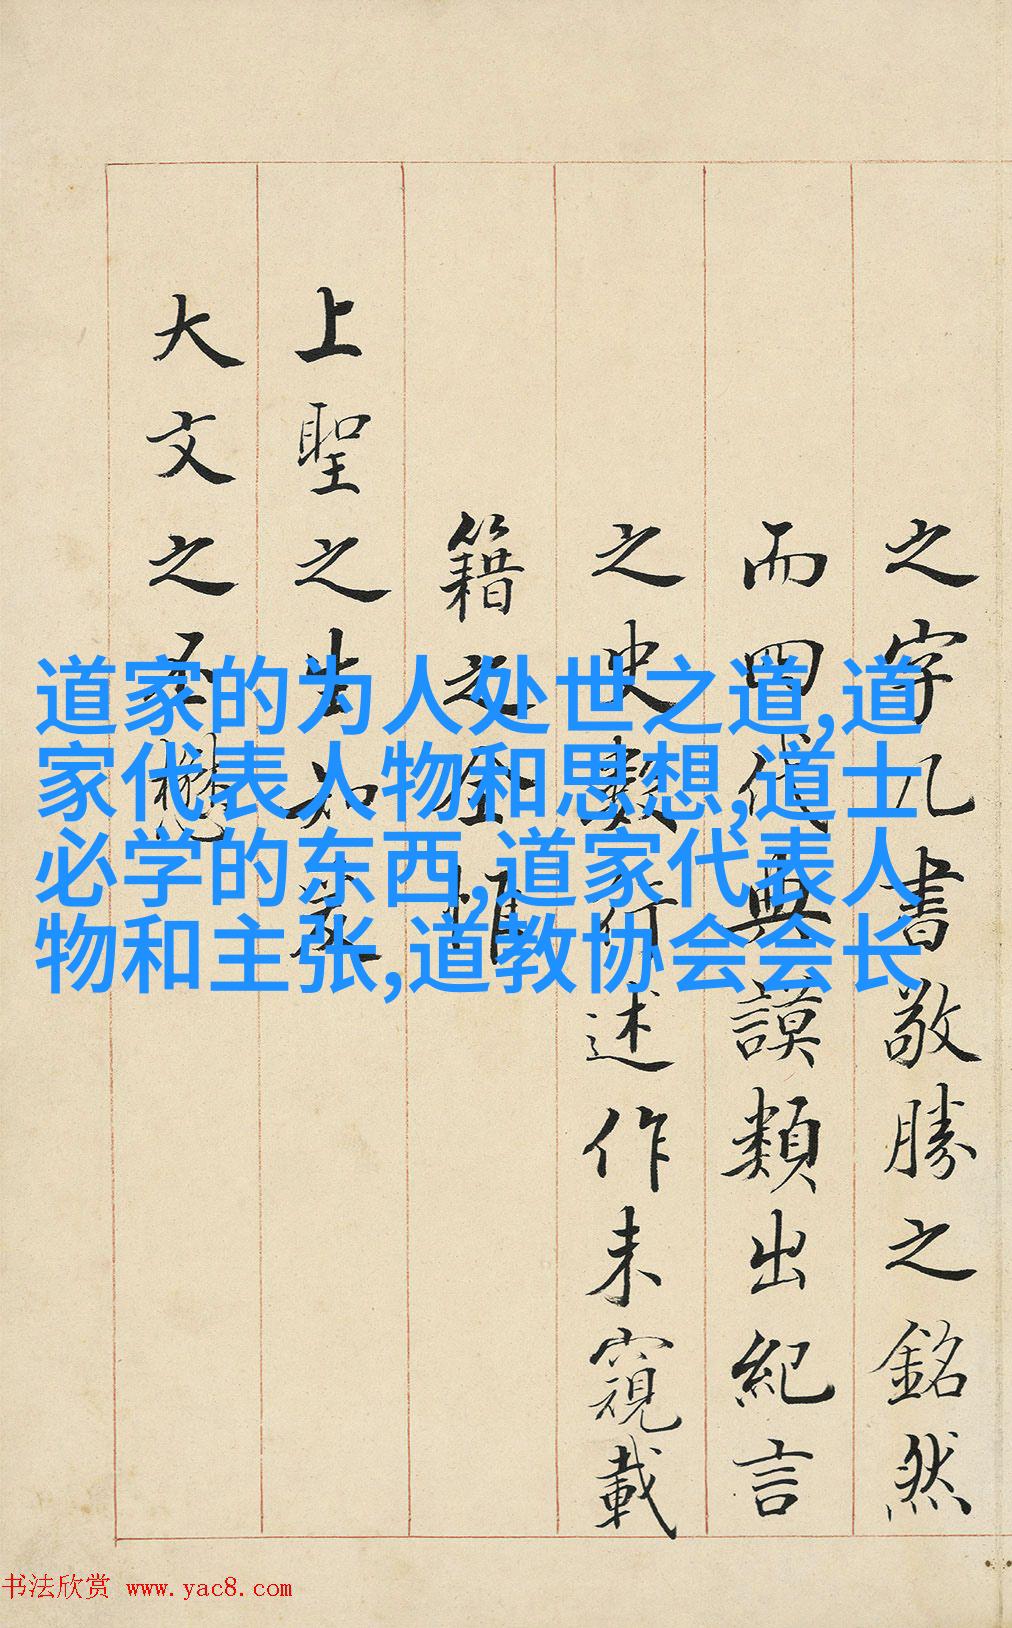 之字几書敬勝之銘然
而四代典謨類出紀言
之史數行述作未窺載
籍之全惟
上聖之生知兼
大文之丕懋
道家的为人处世之道,道
家代表人物和思想,道士
必学的东西,道家代表人
物和主张,道教协会会长
书法欣赏 www.yac8.com